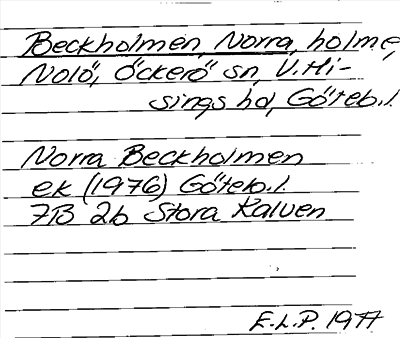 Beckholmen, Norra, holme,
Nolö, Öckerö sn, V. Hi-
sings hd, Göteb. l.
Norra Beckholmen
ek (1976) Göteb. l.
7B 2b Stora Kalven
E.L.P. 1977